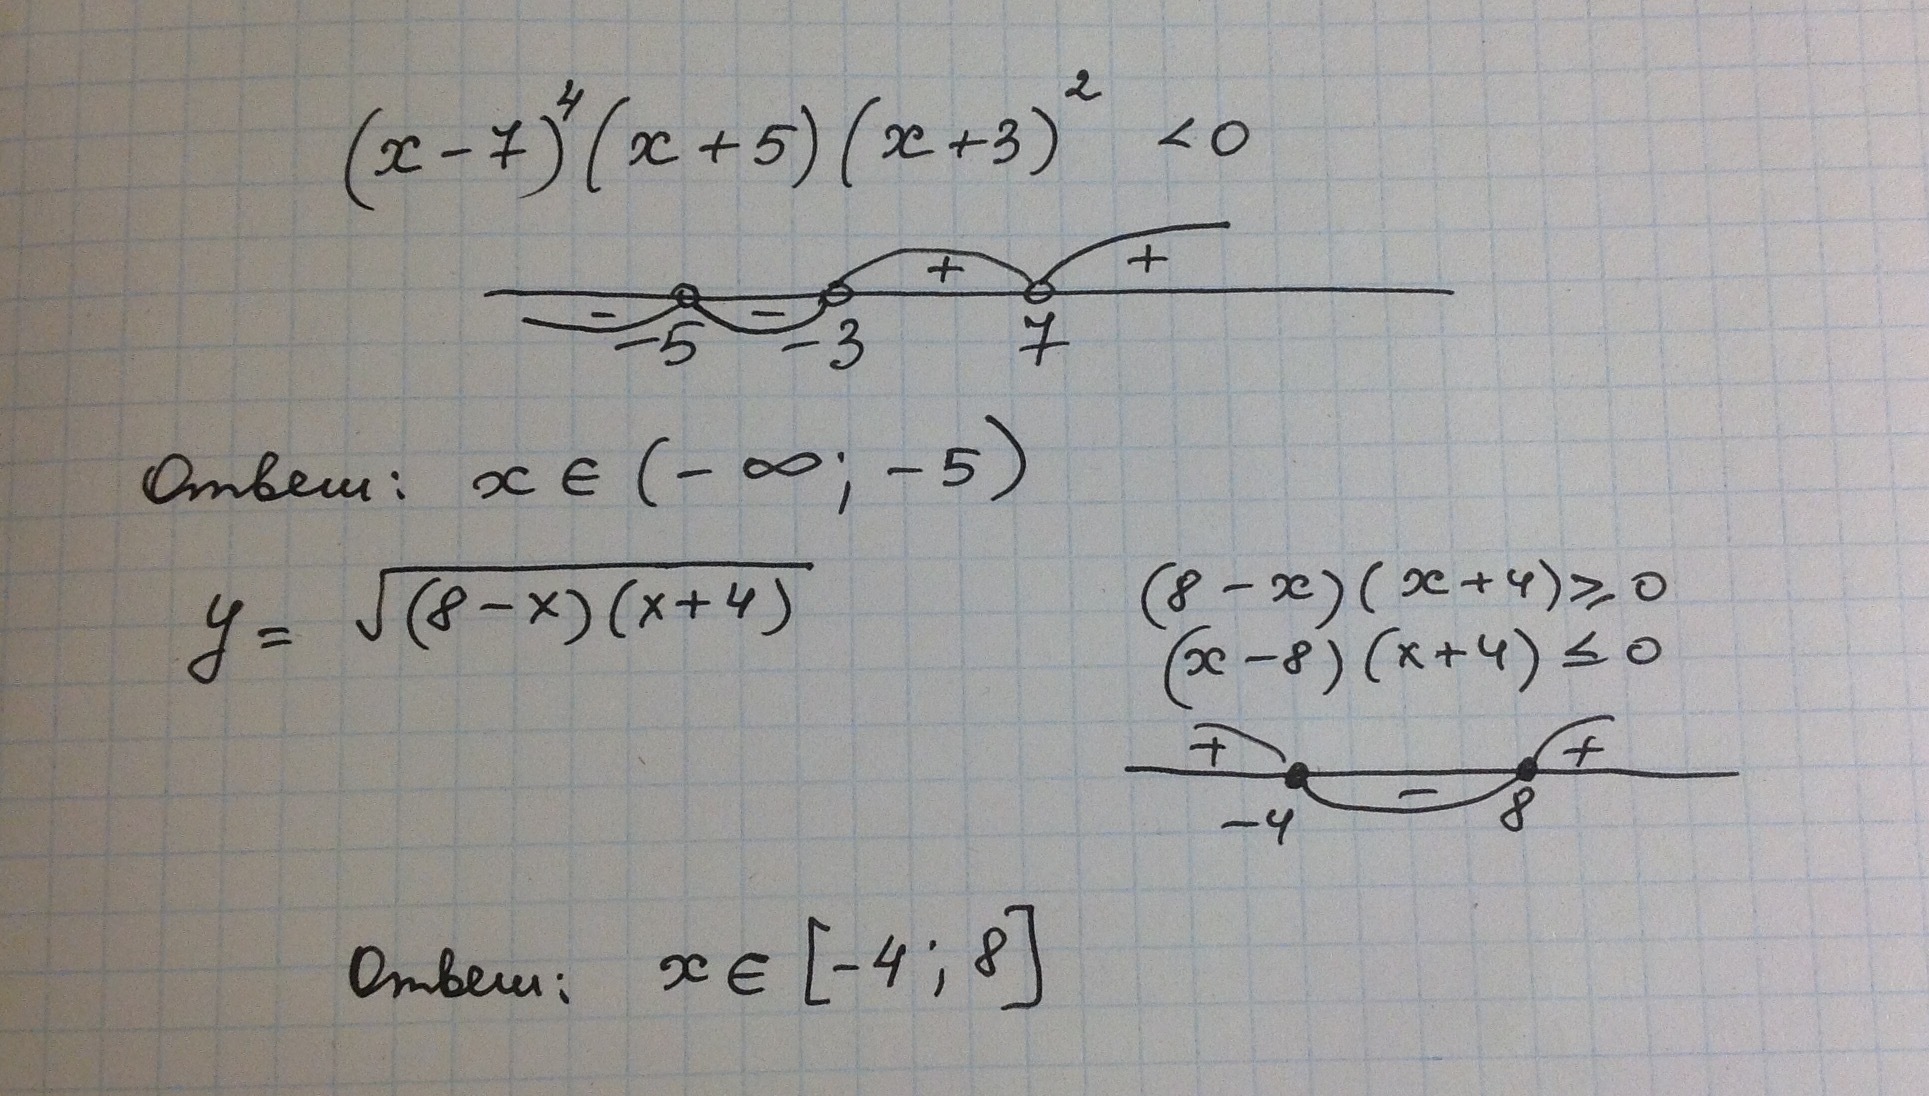 (x-7)⁴(x+5)(x+3)² <0
- - + +
-5 -3 7
Ответ: x ∈ (-∞; -5)
y = √(8-x)(x+4)
(8-x)(x+4)≥0
(x-8)(x+4)≤0
+ - +
-4 8
Ответ: x ∈ [-4; 8]